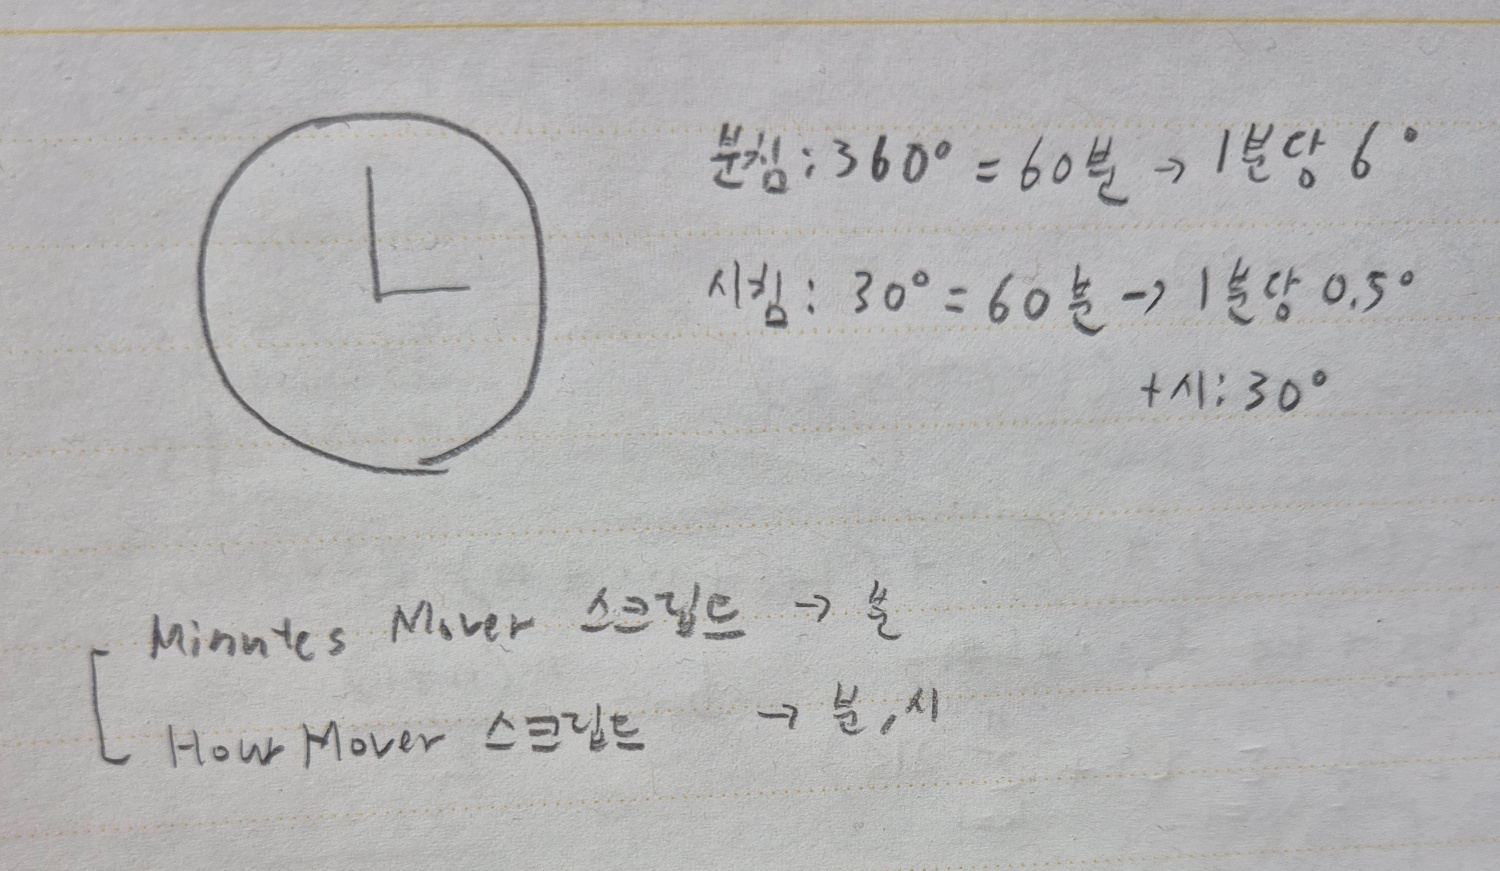 분침 : 360° = 60분 → 1분당 6°
시침 : 30° = 60분 → 1분당 0.5°
+시: 30°
Minutes Mover 스크립트 → 분
Hour Mover 스크립트 → 분, 시